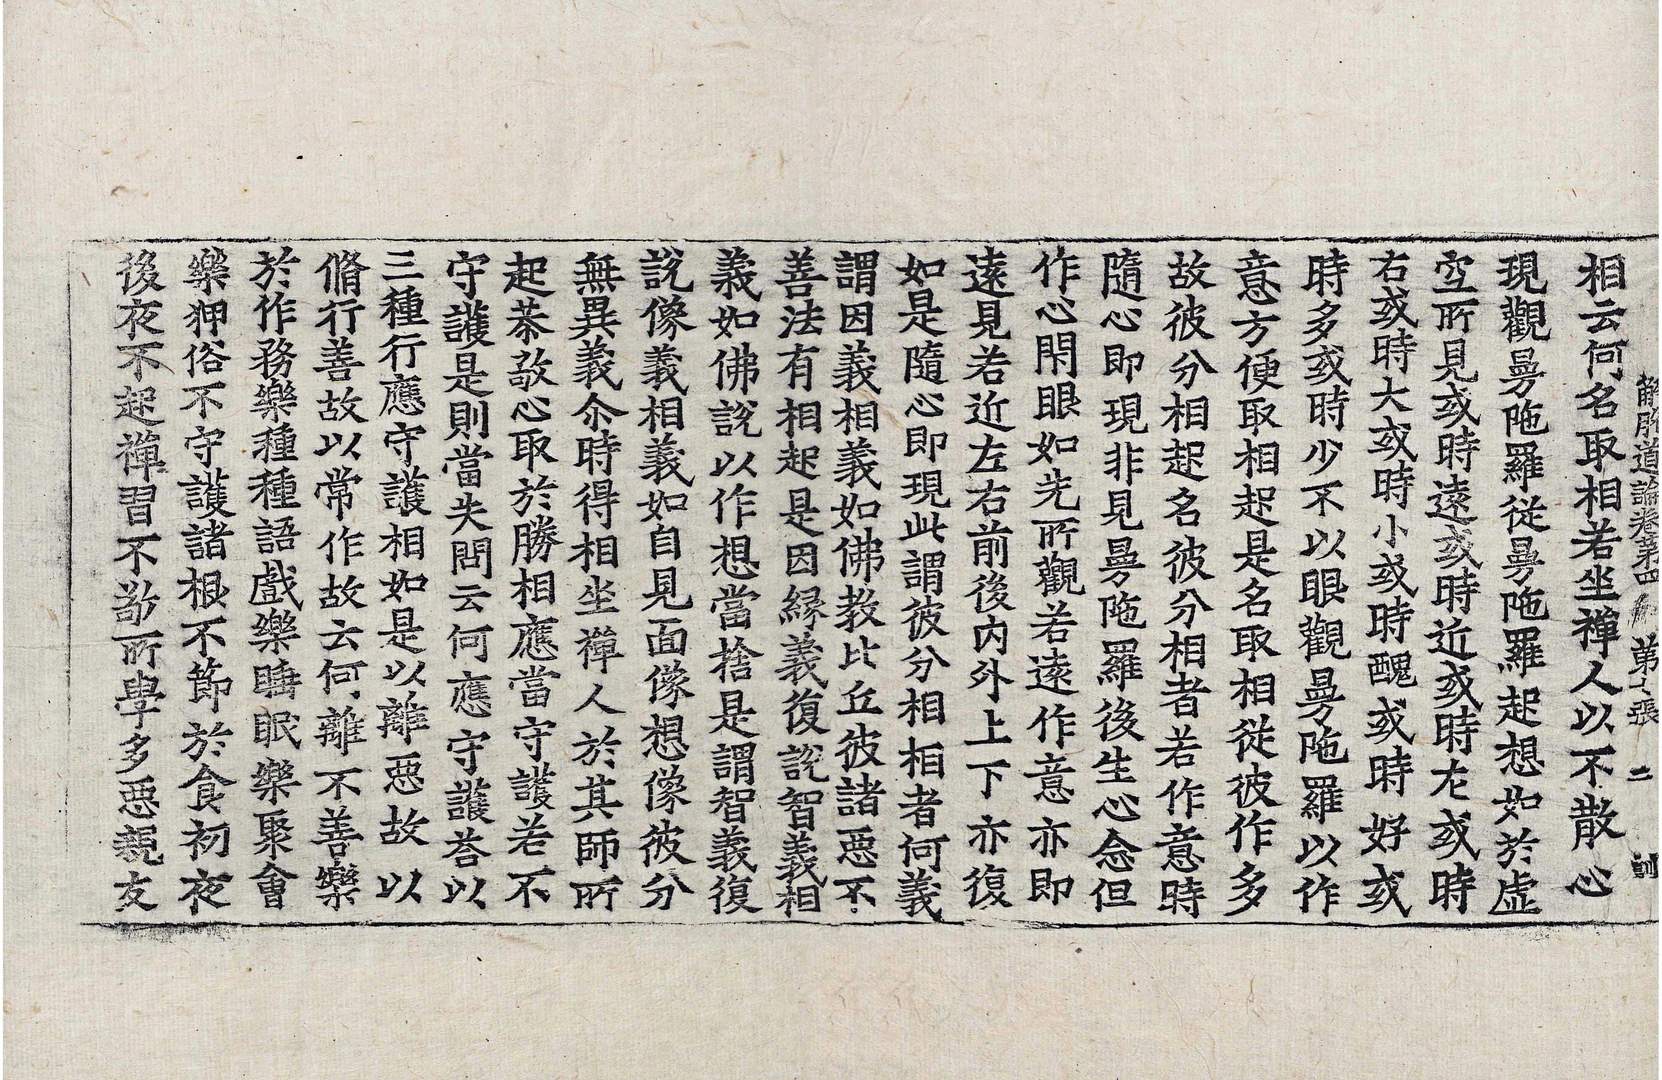 解脫道論卷第四 第七張 二 訓
相云何名取相若坐禪人以不散心
現觀曼陁羅從曼陁羅起想如於虛
空所見或時遠或時近或時左或時
右或時大或時小或時醜或時好或
時多或時少不以眼觀曼陁羅以作
意方便取相起是名取相從彼作多
故彼分相起名彼分相者若作意時
隨心即現非見曼陁羅後生心念但
作心閇眼如先所觀若遠作意亦即
遠見若近左右前後內外上下亦復
如是隨心即現此謂彼分相相者何義
謂因義相義如佛教比丘彼諸惡不
善法有相起是因緣義復說智義相
義如佛說以作想當捨是謂智義復
說像義相義如自見面像想像彼分
無異義尒時得相坐禪人於其師所
起恭敬心取於勝相應當守護若不
守護是則當失問云何應守護荅以
三種行應守護相如是以離惡故以
脩行善故以常作故云何離不善樂
於作務樂種種語戲樂睡眠樂聚會
樂狎俗不守護諸根不節於食初夜
後夜不起禪習不敬所學多惡親友